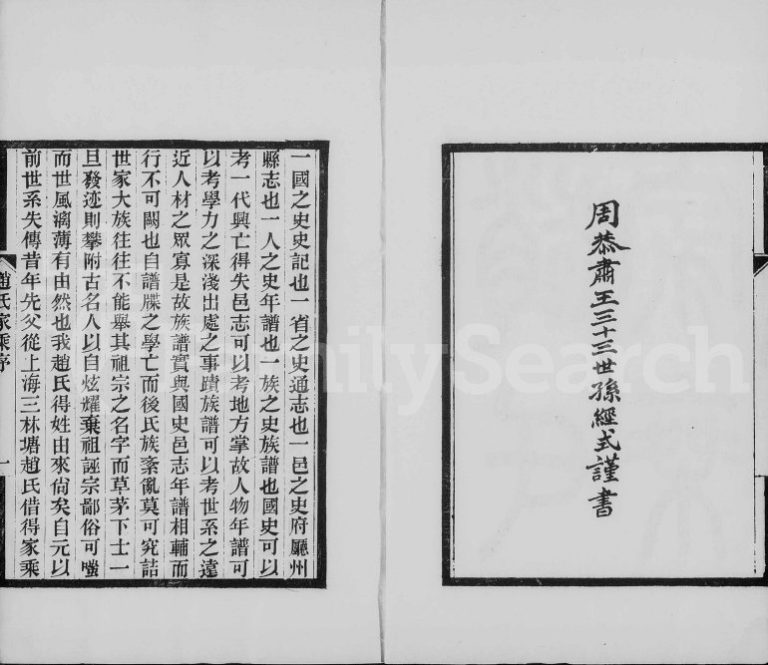 周恭肅王三十三世孫經式謹書
一國之史史記也一省之史通志也一邑之史府廳州
縣志也一人之史年譜也一族之史族譜也國史可以
考一代興亡得失邑志可以考地方掌故人物年譜可
以考學力之深淺出處之事蹟族譜可以考世系之遠
近人材之眾寡是故族譜實與國史邑志年譜相輔而
行不可闕也自譜牒之學亡而後氏族紊亂莫可究詰
世家大族往往不能舉其祖宗之名字而草茅下士一
旦發迹則攀附古名人以自炫耀棄祖誣宗鄙俗可嗤
而世風漓薄有由然也我趙氏得姓由來尙矣自元以
前世系失傳昔年先父從上海三林塘趙氏借得家乘
趙氏家乘序
一
FamilySearch